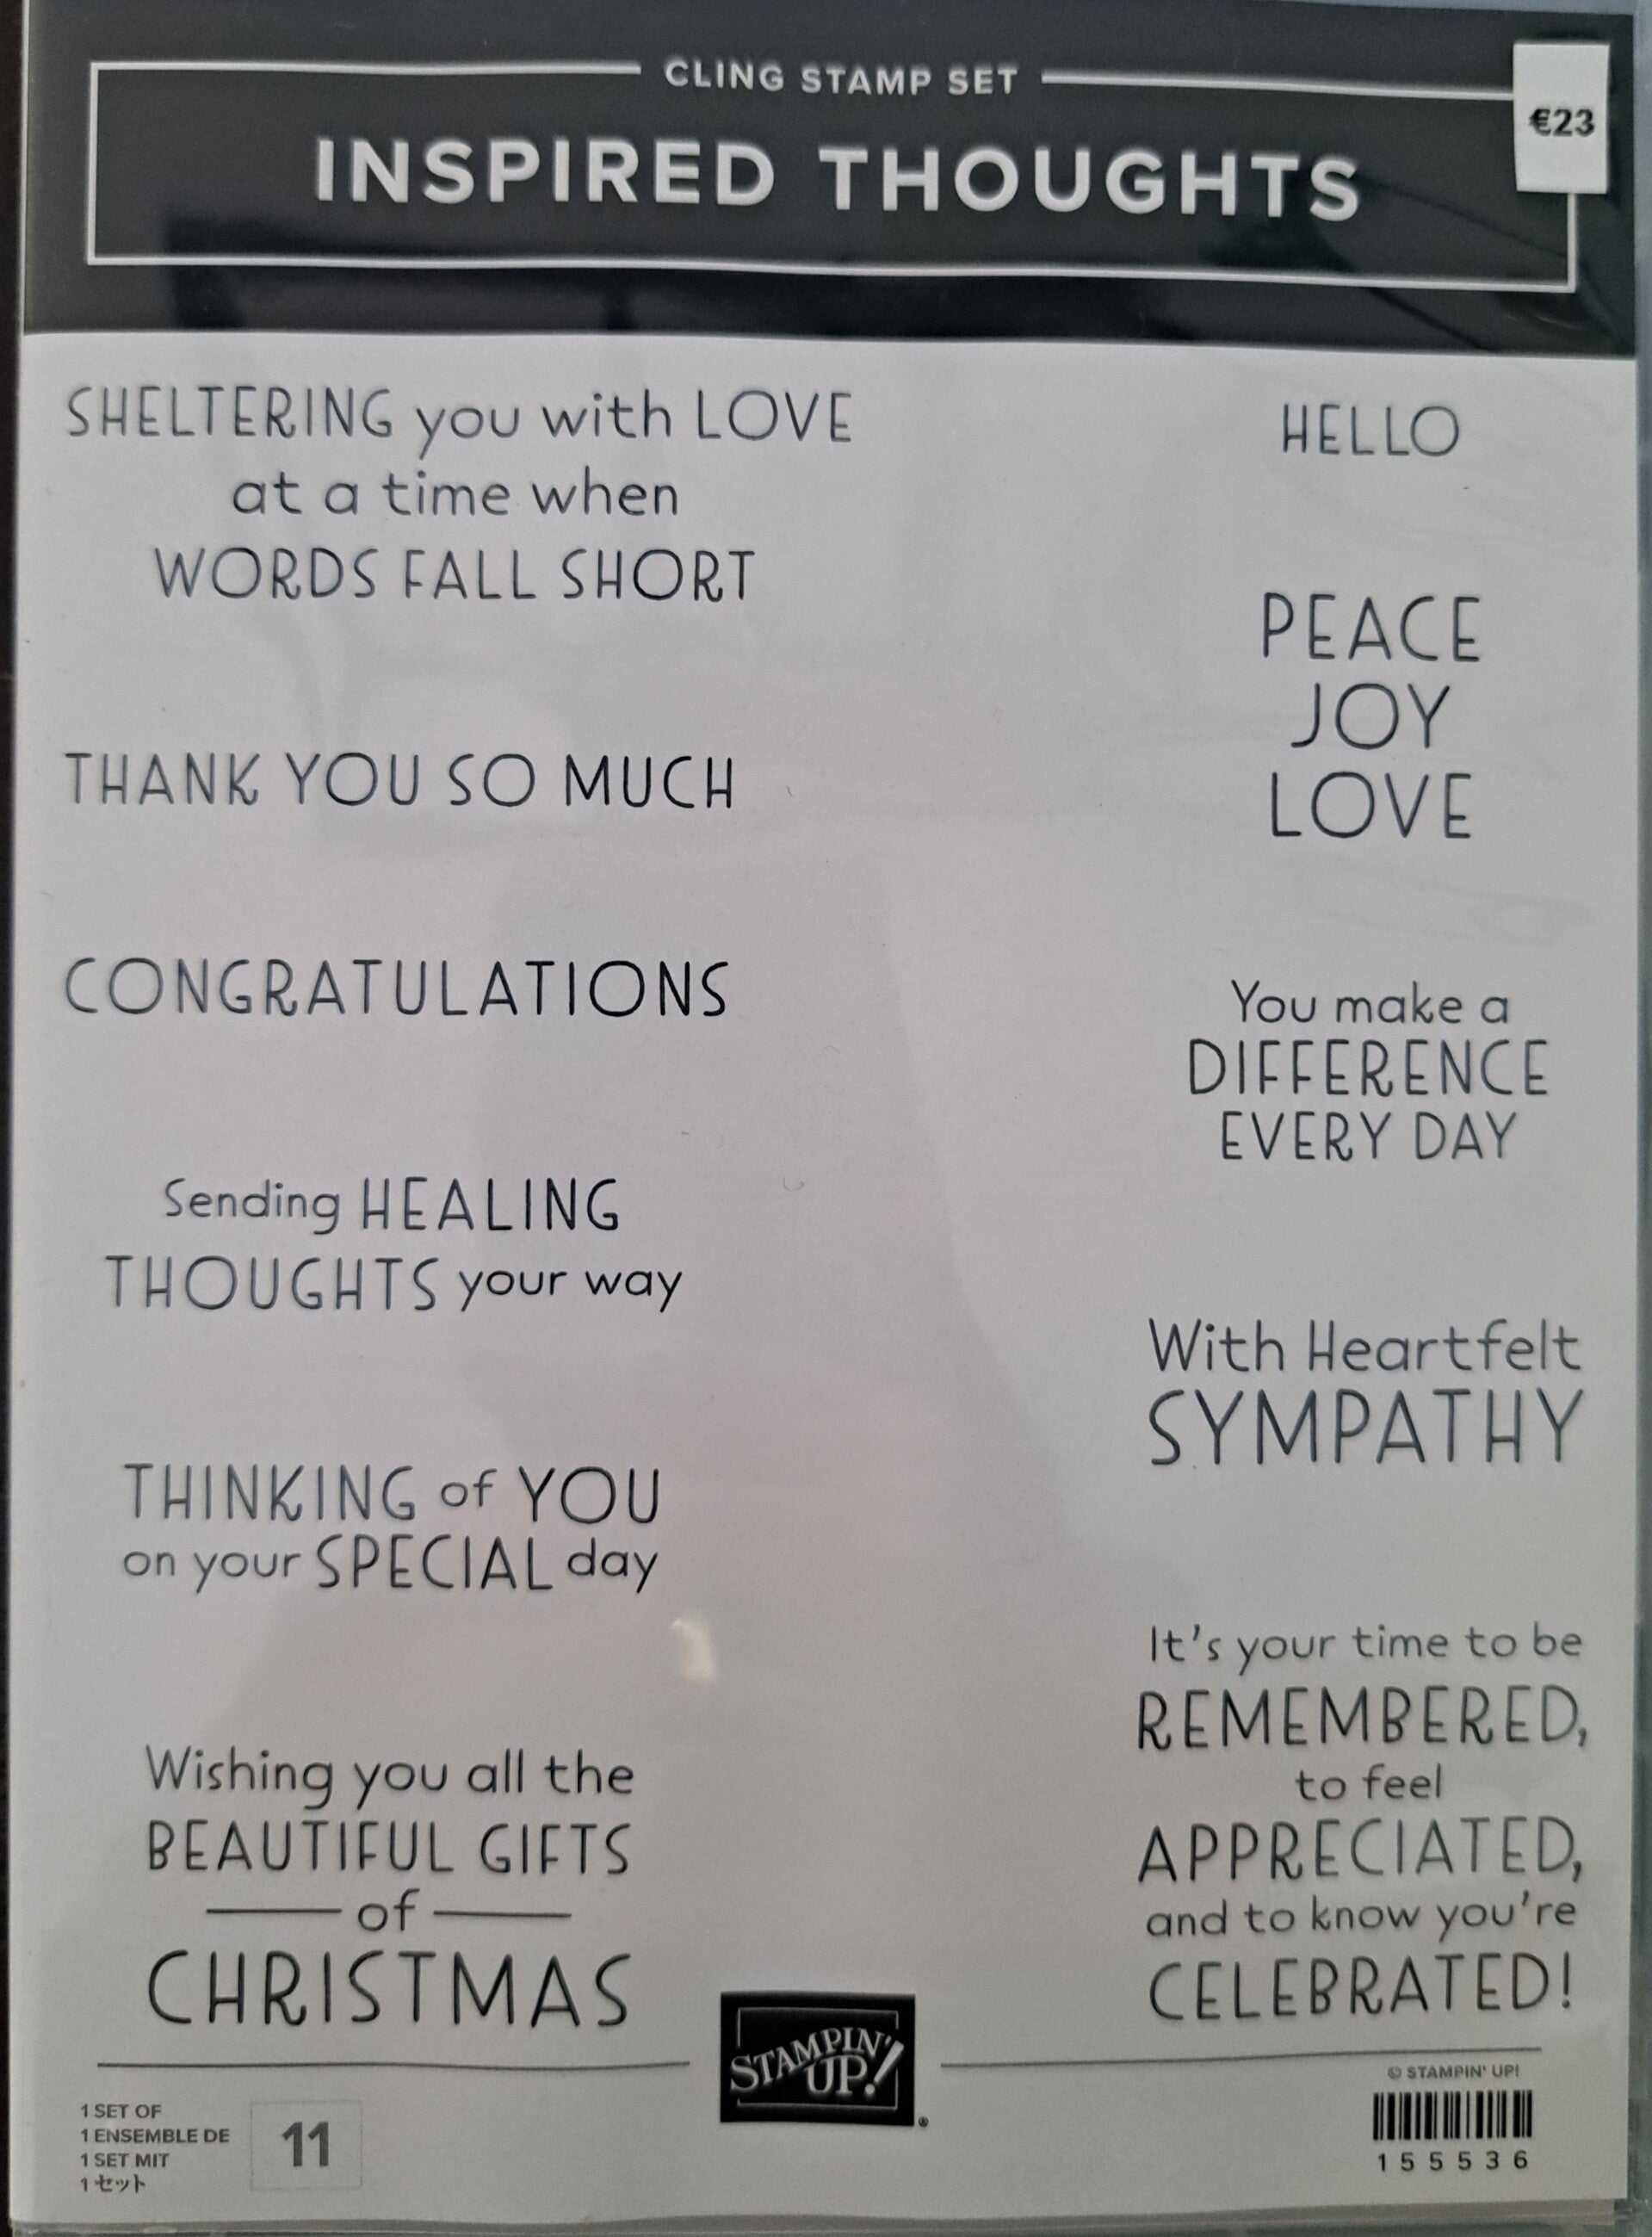 CLING STAMP SET
INSPIRED THOUGHTS
€23
SHELTERING you with LOVE
at a time when
WORDS FALL SHORT
THANK YOU SO MUCH
CONGRATULATIONS
Sending HEALING
THOUGHTS your way
THINKING of YOU
on your SPECIAL day
Wishing you all the
BEAUTIFUL GIFTS
of
CHRISTMAS
HELLO
PEACE
JOY
LOVE
You make a
DIFFERENCE
EVERY DAY
With Heartfelt
SYMPATHY
It's your time to be
REMEMBERED,
to feel
APPRECIATED,
and to know you're
CELEBRATED!
1 SET OF
1 ENSEMBLE DE
1 SET MIT
1 セット
11
STAMPIN'
UP!®
© STAMPIN' UP!
155536